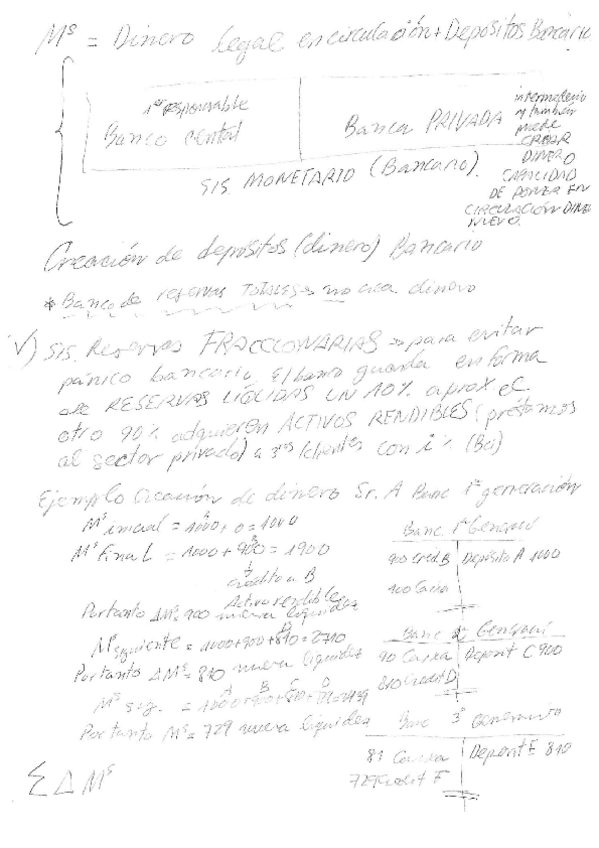 Mˢ = Dinero legal en circulación + Depósitos Bancario
1er responsable
Banco central
Banca PRIVADA
intermediario
y también
puede
CREAR
DINERO
CAPACIDAD
DE PONER EN
CIRCULACIÓN DINE
NUEVO.
SIS MONETARIO (Bancario).
Creación de depósitos (dinero) Bancario
* Banco de reservas TOTALES → no crea dinero
V) SIS. Reservas FRACCIONARIAS → para evitar
pánico bancario, El banco guarda en forma
de RESERVAS LÍQUIDAS UN 10% aprox el
otro 90% adquieren ACTIVOS RENDIBLES (préstamos
al sector privado) a 3ros /clientes con i % (Bº)
Ejemplo Creación de dinero Sr. A Banc 1ª generación
Mˢ inicial = 1000 + 0 = 1000
Mˢ final = 1000 + 900 = 1900
crédito a B
Activo rendible
Por tanto ΔMˢ = 900 nueva liquidez
Mˢ siguiente = 1000+900+810 = 2710
Por tanto ΔMˢ = 810 nueva liquidez
Mˢ sig. = 1000+900+810+729=3439
Por tanto Mˢ = 729 nueva liquidez
Σ Δ Mˢ
Banc 1ª Generaci
900 Cred B | Depósito A 1000
100 Caixa
Banc 2ª Generaci
90 Caixa | Deposit C 900
810 Credit D
Banc 3ª Generanto
81 Caixa | Deposit E 810
729 Credit F